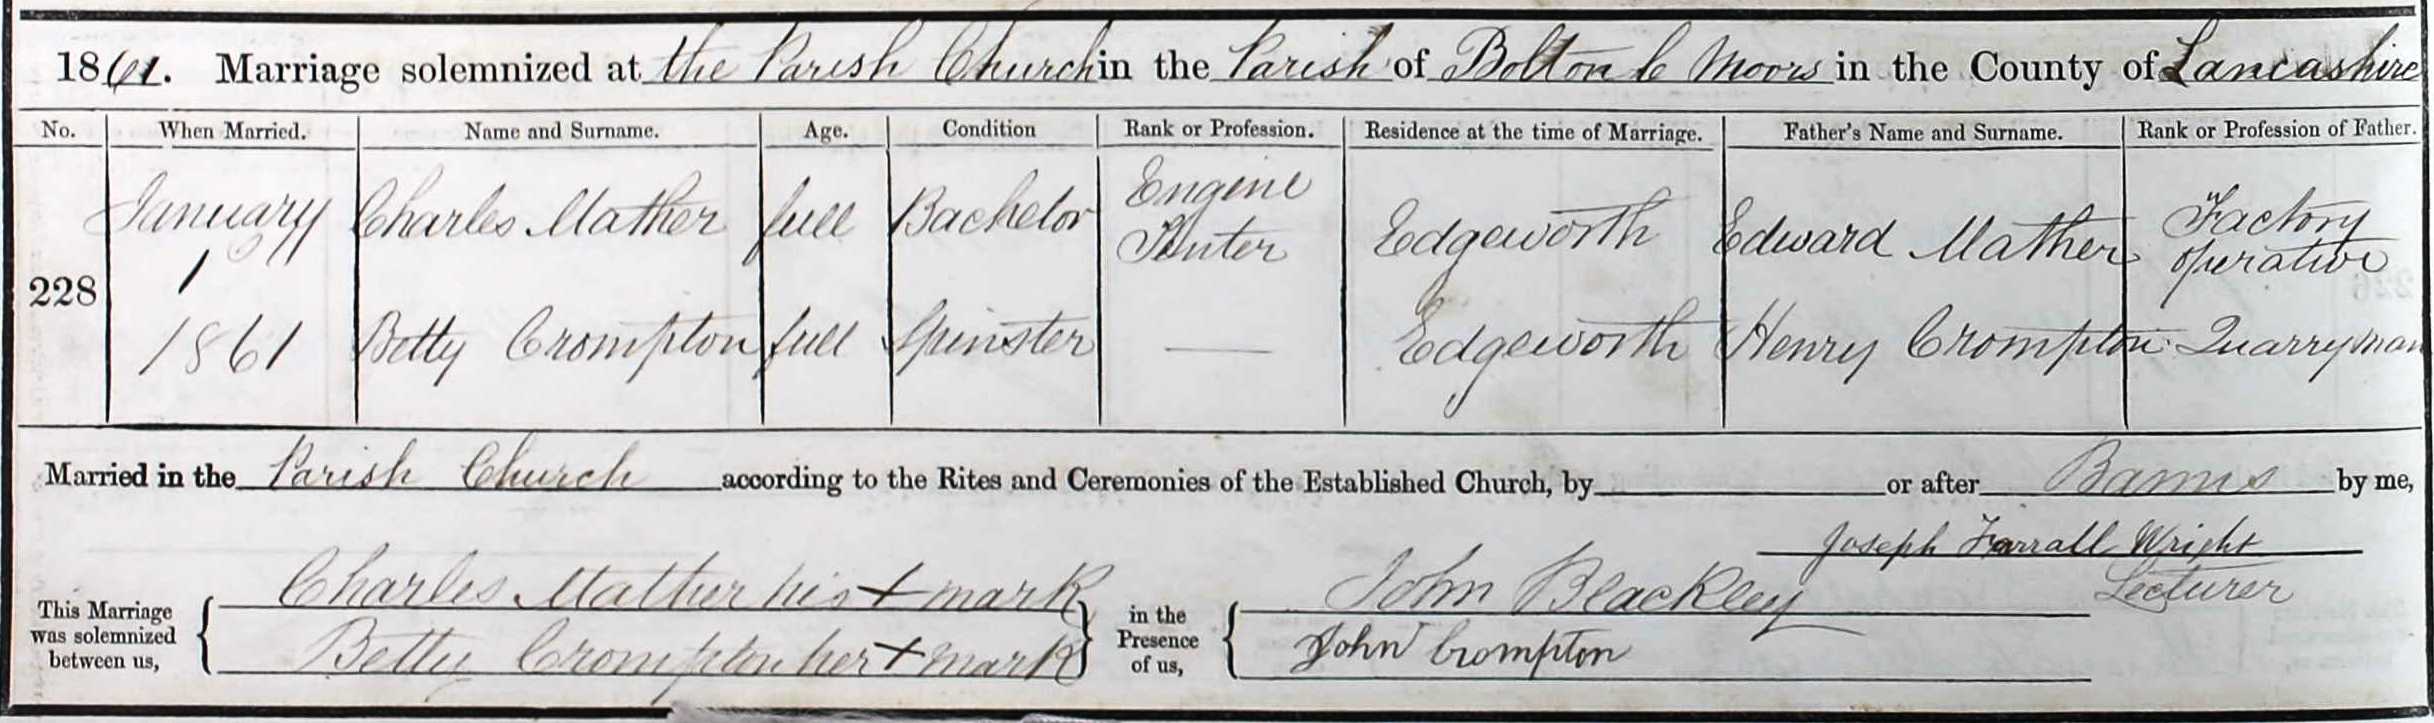 1861. Marriage solemnized at the Parish Church in the Parish of Bolton le Moors in the County of Lancashire
No. When Married. Name and Surname. Age. Condition Rank or Profession. Residence at the time of Marriage. Father's Name and Surname. Rank or Profession of Father.
228 January 1 1861 Charles Mather full Bachelor Engine Tenter Edgeworth Edward Mather Factory operative
Betty Crompton full Spinster — Edgeworth Henry Crompton Quarryman
Married in the Parish Church according to the Rites and Ceremonies of the Established Church, by or after Banns by me,
Joseph Farrall Wright
Lecturer
This Marriage was solemnized between us, Charles Mather his + mark in the Presence of us, John Blackley
Betty Crompton her + mark John Crompton